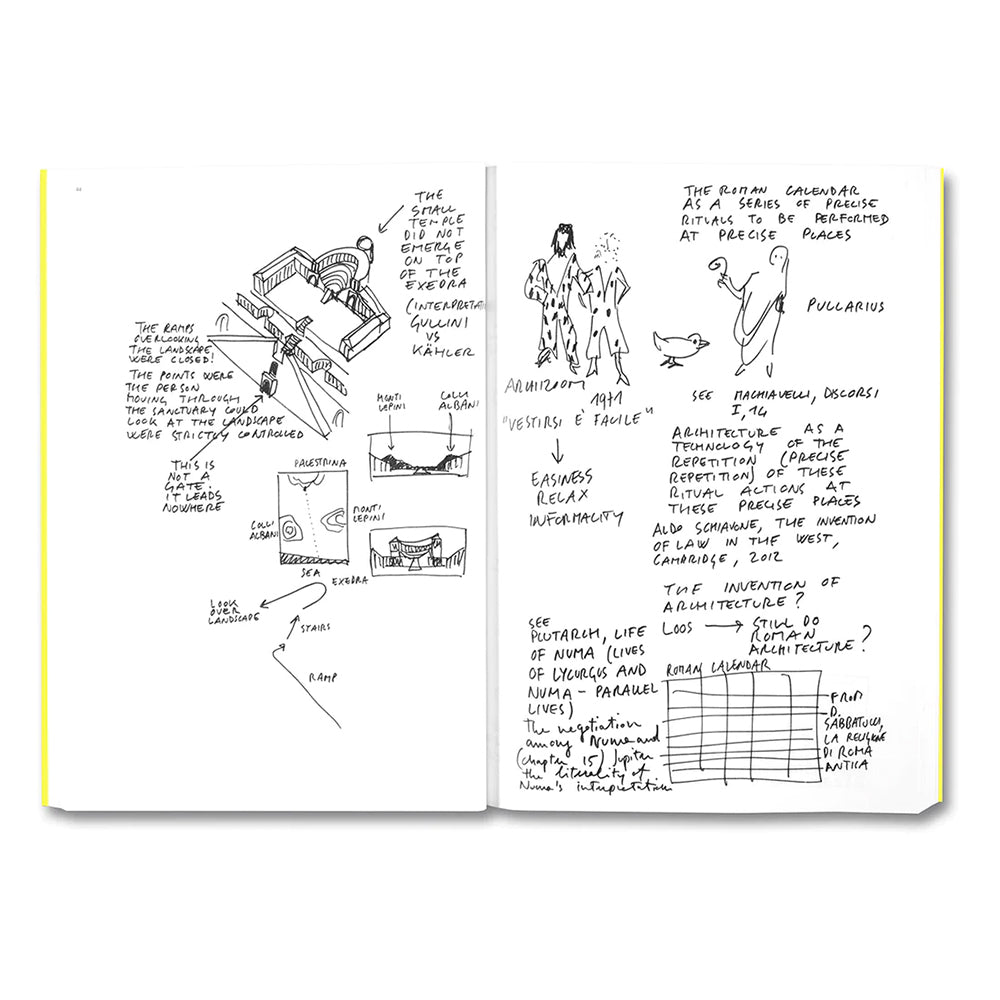 44
THE
SMALL
TEMPLE
DID NOT
EMERGE
ON TOP
OF THE
EXEDRA
(INTERPRETA
GULLINI
VS
KÄHLER
THE RAMPS
OVERLOOKING
THE LANDSCAPE
WERE CLOSED!
THE POINTS WERE
THE PERSON
MOVING THROUGH
THE SANCTUARY COULD
LOOK AT THE LANDSCAPE
WERE STRICTLY CONTROLLED
THIS IS
NOT A
GATE.
IT LEADS
NOWHERE
MONTI
LEPINI
COLLI
ALBANI
PALESTRINA
COLLI
ALBANI
MONTI
LEPINI
SEA
EXEDRA
LOOK
OVER
LANDSCAPE
STAIRS
RAMP
THE ROMAN CALENDAR
AS A SERIES OF PRECISE
RITUALS TO BE PERFORMED
AT PRECISE PLACES
PULLARIUS
ARCHIZOOM
1971
"VESTIRSI È FACILE"
EASINESS
RELAX
INFORMALITY
SEE MACHIAVELLI, DISCORSI
I, 14
ARCHITECTURE AS A
TECHNOLOGY OF THE
REPETITION (PRECISE
REPETITION) OF THESE
RITUAL ACTIONS AT
THESE PRECISE PLACES
ALDO SCHIAVONE, THE INVENTION
OF LAW IN THE WEST,
CAMBRIDGE, 2012
THE INVENTION OF
ARCHITECTURE?
LOOS → STILL DO
ROMAN
ARCHITECTURE?
SEE
PLUTARCH, LIFE
OF NUMA (LIVES
OF LYCURGUS AND
NUMA – PARALLEL
LIVES)
The negotiation
among Numa and
(chapter 15) Jupiter
the literality of
Numa's interpretation
ROMAN CALENDAR
FROM
D.
SABBATUCCI,
LA RELIGIONE
DI ROMA
ANTICA